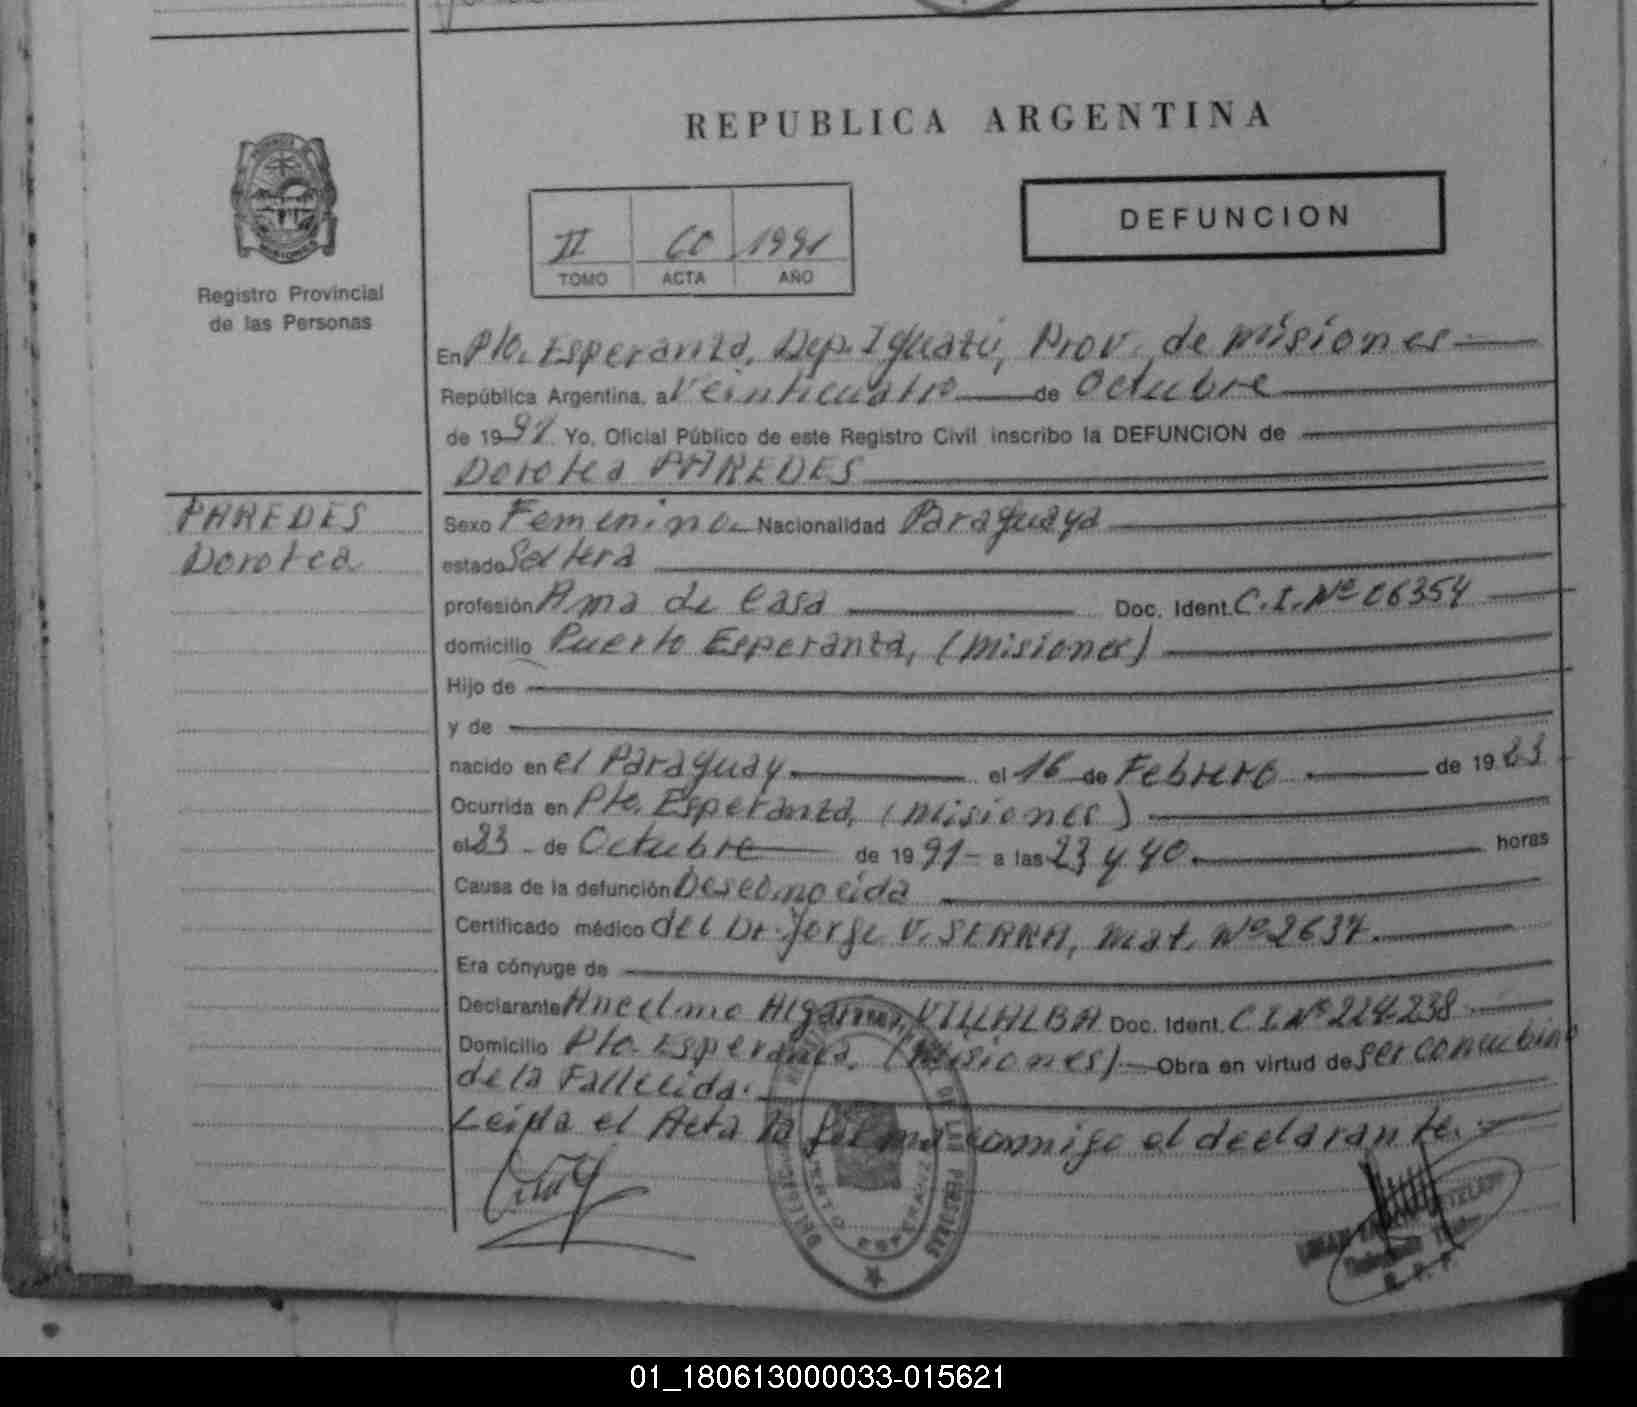 REPUBLICA ARGENTINA
DEFUNCION
II 1991
TOMO ACTA AÑO
Registro Provincial
de las Personas
En Pto. Esperanza, Dep. Iguazú, Prov. de Misiones
República Argentina, a Veinticuatro de Octubre
de 1991 Yo, Oficial Público de este Registro Civil inscribo la DEFUNCION de
Dorotea PAREDES
PAREDES
Dorotea
Sexo Femenino. Nacionalidad Paraguaya
estado Soltera
profesión Ama de Casa Doc. Ident. C.I. Nº 06354
domicilio Puerto Esperanza, (Misiones)
Hijo de
y de
nacido en el Paraguay el 16 de Febrero de 19
Ocurrida en Pto. Esperanza, (Misiones)
el 23 de Octubre de 19 91 a las 23 y 40. horas
Causa de la defunción Desconocida
Certificado médico del Dr. Jorge V. SERRA, Mat. Nº 2637.
Era cónyuge de
Declarante Ancelmo VILLALBA Doc. Ident. C.I. Nº 224.238
Domicilio Pto. Esperanza, (Misiones). Obra en virtud de ser concubino
de la Fallecida.
Leída el Acta la firma conmigo el declarante.
PUERTO ESPERANZA
DE LAS PERSONAS
R. P. P.
01_180613000033-015621